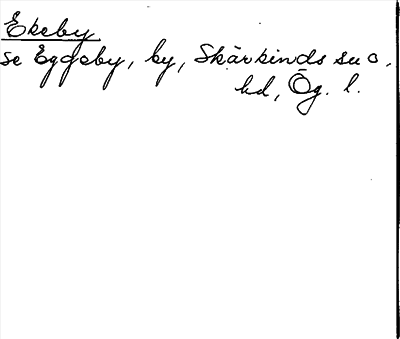 Ekeby
se Eggeby, by, Skärkinds su o.
hd, Ög. l.